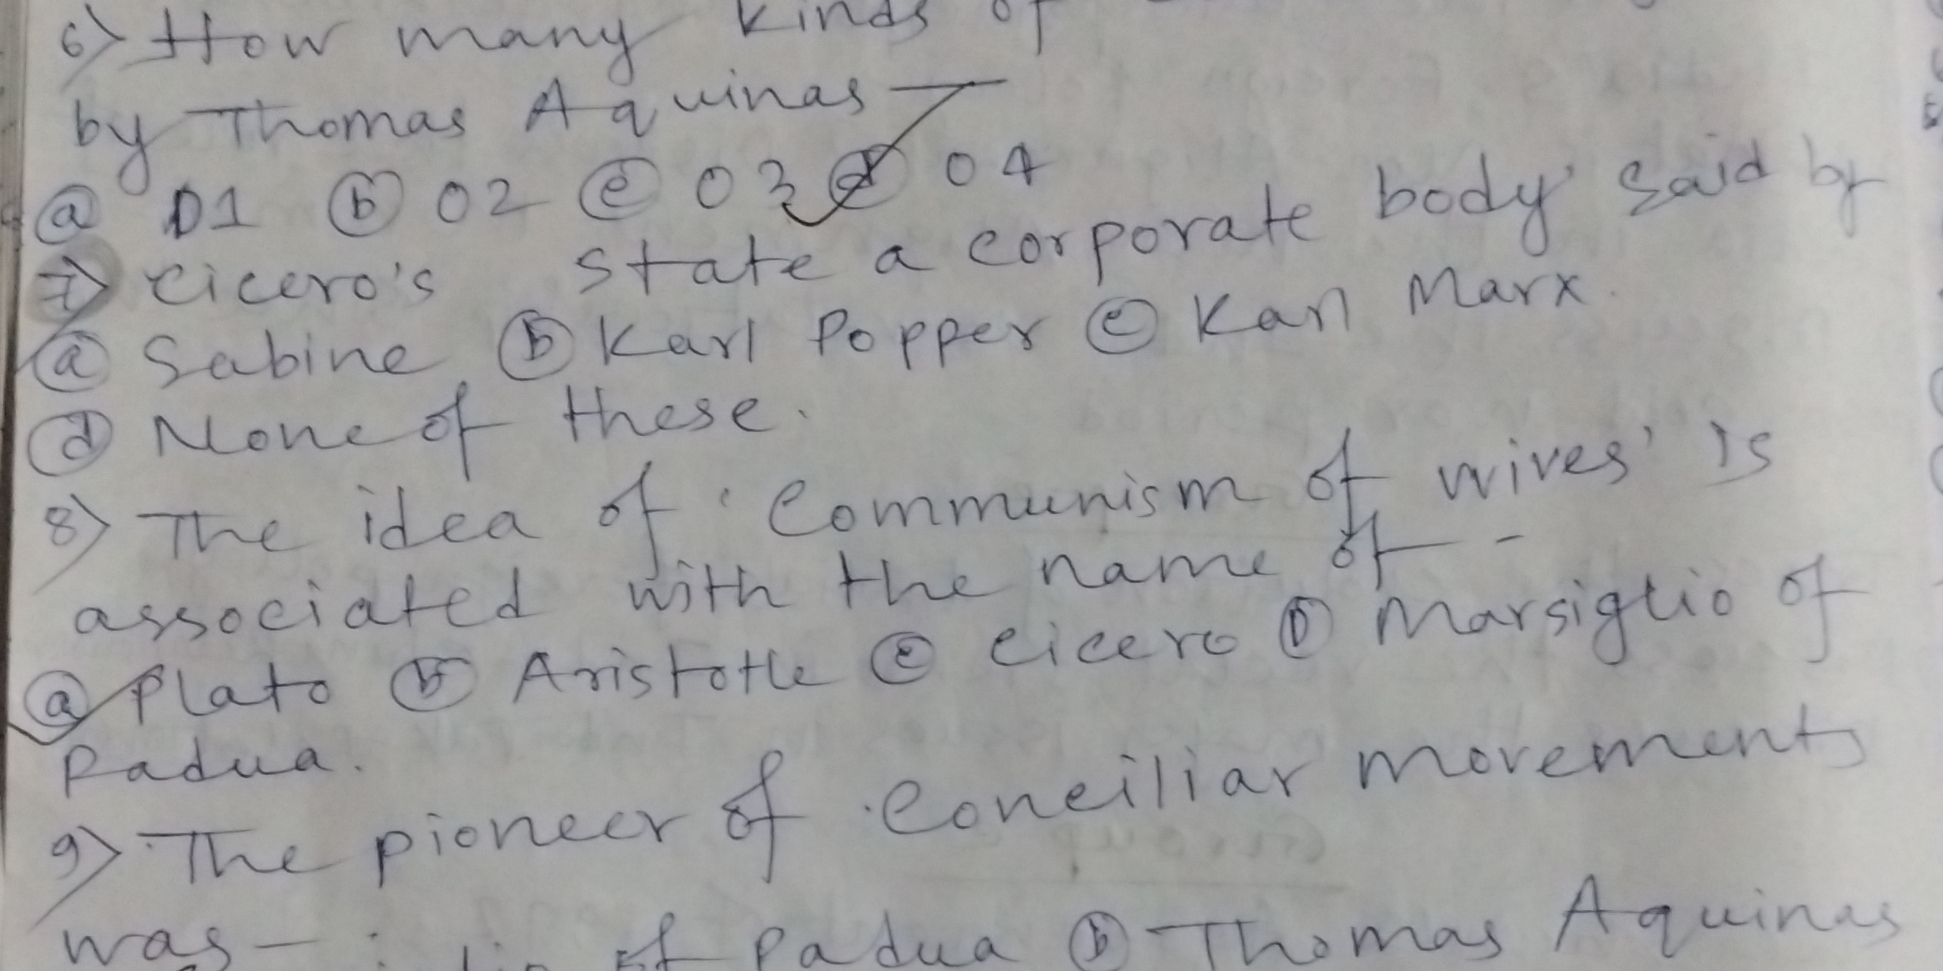 6) How many kinds of
by Thomas Aquinas —
ⓐ 01 ⓑ 02 ⓒ 03 ⓓ 04
7) Cicero's state a corporate body' said by
ⓐ Sabine ⓑ Karl Popper ⓒ Karl Marx.
ⓓ None of these.
8) The idea of 'Communism of wives' is
associated with the name of - -
ⓐ Plato ⓑ Aristotle ⓒ Cicero ⓓ Marsiglio of
Padua.
9) The pioneer of Conciliar movements
was — of Padua ⓑ Thomas Aquinas